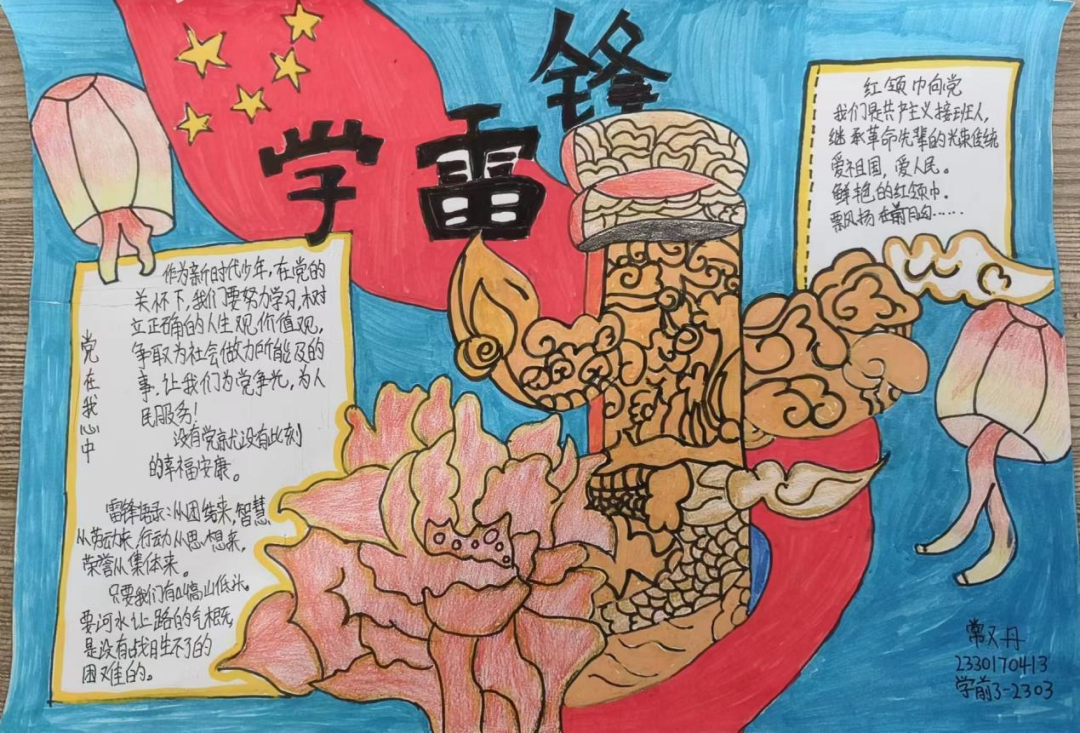 学雷锋
党在我心中
作为新时代少年,在党的
关怀下,我们要努力学习,树
立正确的人生观,价值观,
争取为社会做力所能及的
事.让我们为党争光,为人
民服务!
没有党就没有此刻
的幸福安康。
雷锋语录:从团结来,智慧
从劳动来,行动从思想来,
荣誉从集体来。
只要我们有叫高山低头.
要河水让路的气概,
是没有战胜不了的
困难的。
红领巾向党
我们是共产主义接班人,
继承革命先辈的光荣传统
爱祖国,爱人民。
鲜艳的红领巾.
飘扬在前胸……
常又丹
2330170413
学前3-2303